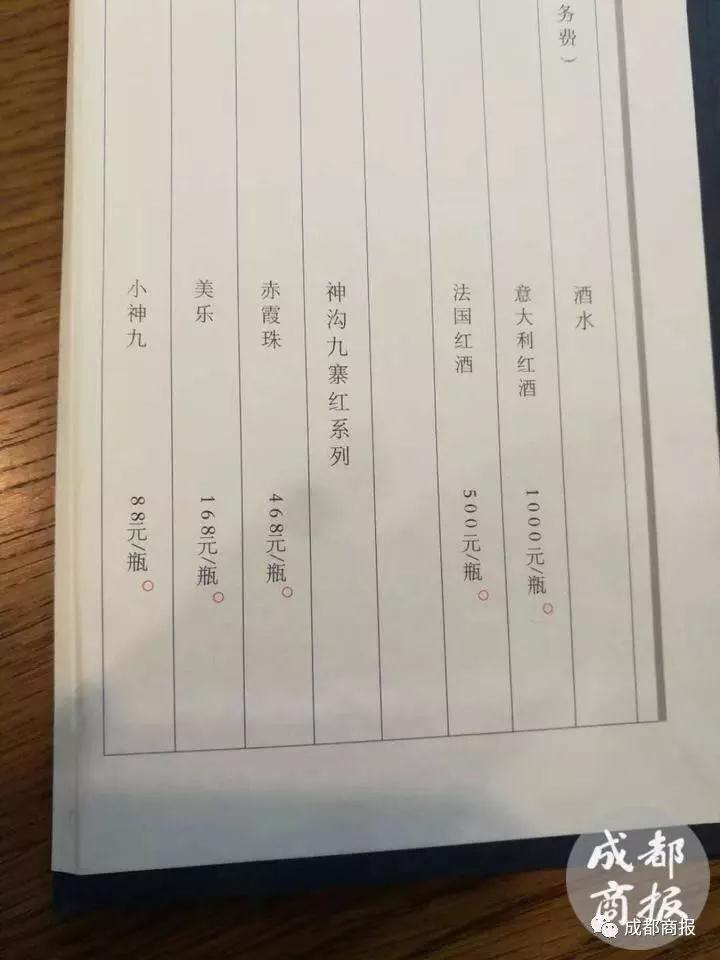 务费）
酒水
意大利红酒 1000元/瓶
法国红酒 500元/瓶
神沟九寨红系列
赤霞珠 468元/瓶
美乐 168元/瓶
小神九 88元/瓶
成都
商报
成都商报